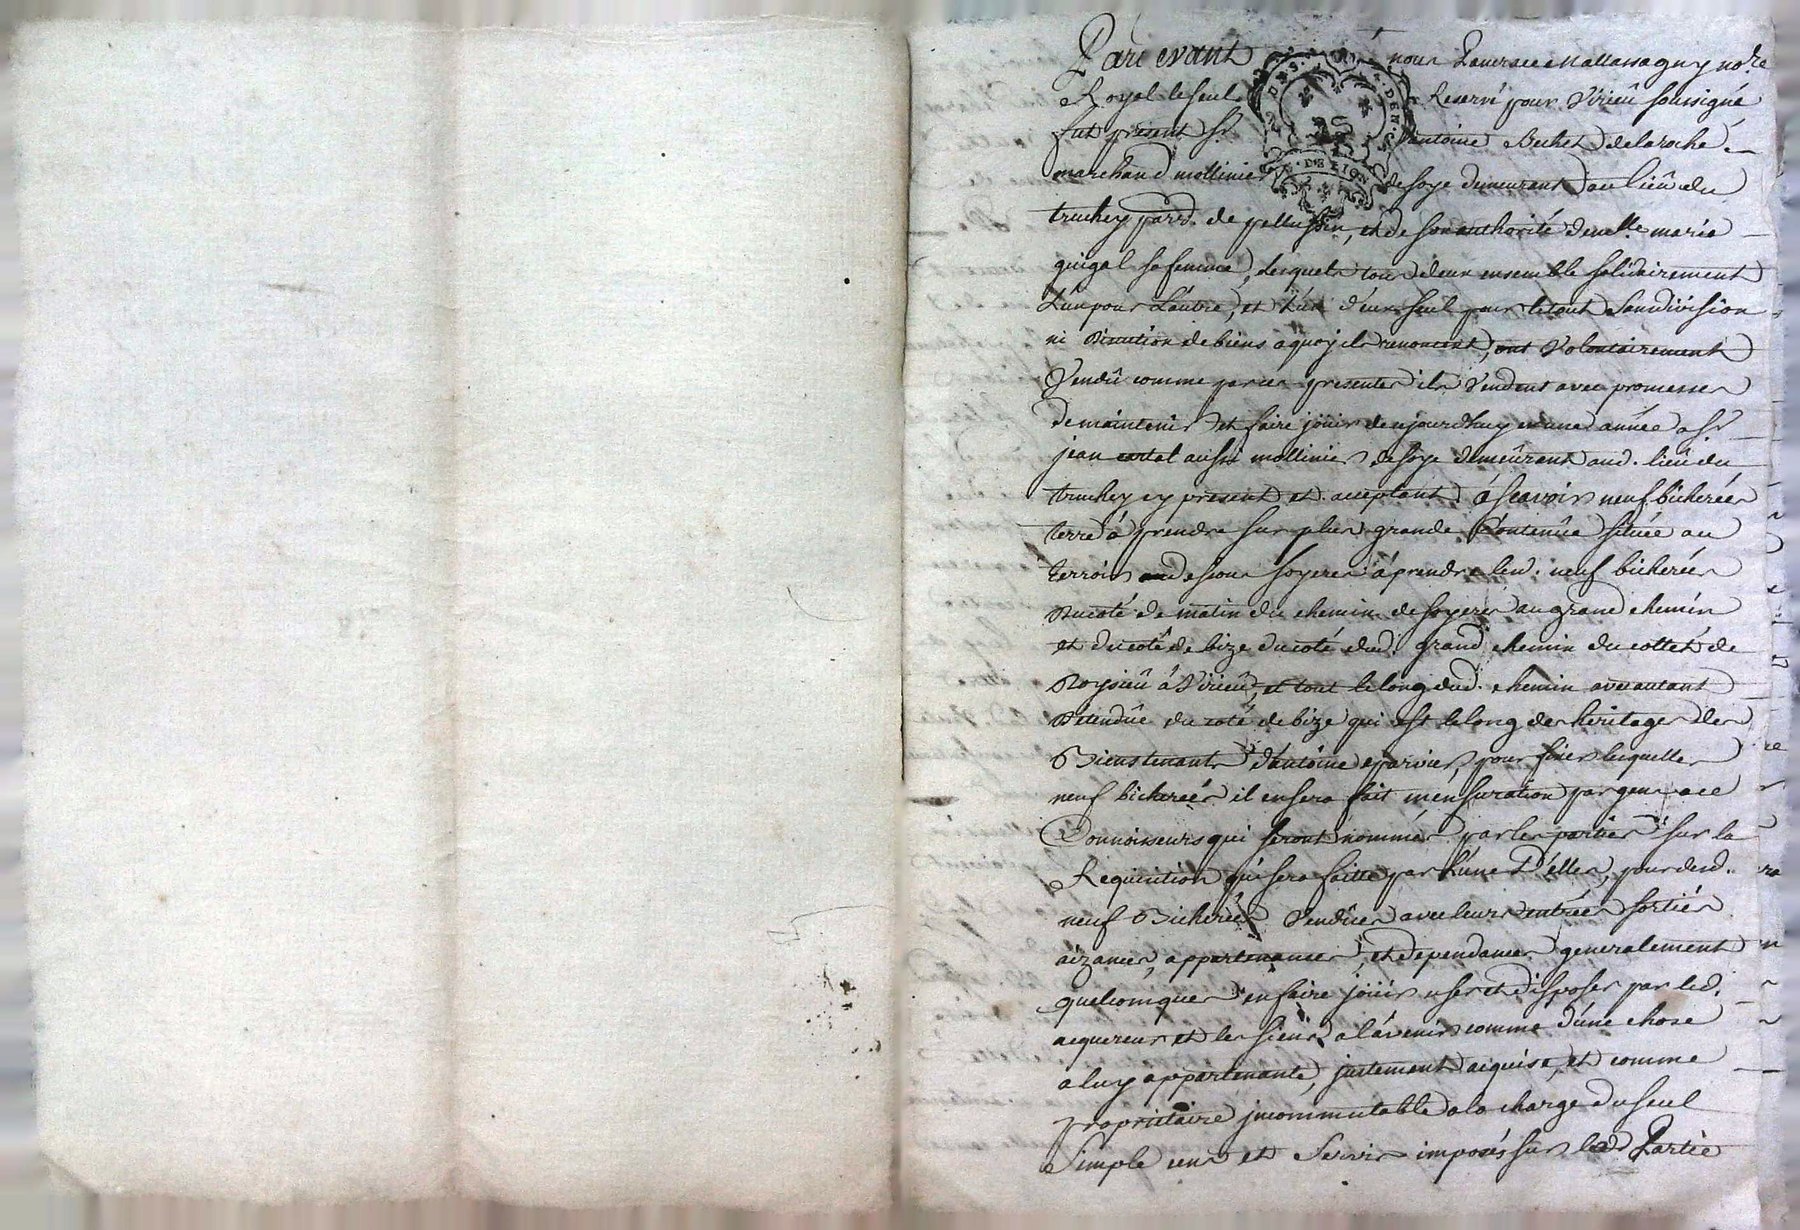 Pardevant nous notre
Royal le seul Reservé pour Virieû soussigné
fut présent Sr. antoine Bechet delaroche
marchand mollinier de soye demeurant au lieû du
truchey parr. de pellussin, et de son authorité demelle. marie
guigal sa femme, lesquels tous deux ensemble solidairement
L'un pour L'autre, et L'un d'eux seul pour le tout sans division
ni discution de biens a quoy ils renoncent, ont Volontairement
Vendû comme par ces presentes ils Vendent avec promesses
de maintenir et faire jouir de ce jourdhuy en une année a Sr
jean cortal aussi mollinier de soye demeûrant aud. lieû du
truchey cy present et acceptant. á scavoir neuf bicherées
terre á prendre sur plus grande Contenüe située au
terroir dessous soyeres á prendre lesd. neuf bicherées
du coté de matin du chemin de soyeres au grand chemin
et du coté de bize du coté dud. grand chemin du collet de
Roysieû á Virieû, et tout le long dud. chemin avec autant
d'etendûe du coté de bize qui est le long des heritages des
Biens tenants d'antoine eparvier, pour fixer lesquelles
neuf bicherées il en sera fait mensuration par gens a ce
Connoisseurs qui seront nommés par les parties sur la
Requisition qui sera faitte par L'une D'elles, pour desd.
neuf Bicherées Vendües avec leurs entrées sorties
aizances, appartenances, et dependances generalement
quelconques en faire joüir user et disposer par led.
acquereur et les siens a l'avenir comme d'une chose
a luy appartenante, justement acquise, et comme
proprietaire jncommutable a la charge du seul
Simple cens et Servis imposés sur lad. Partie
DE LION